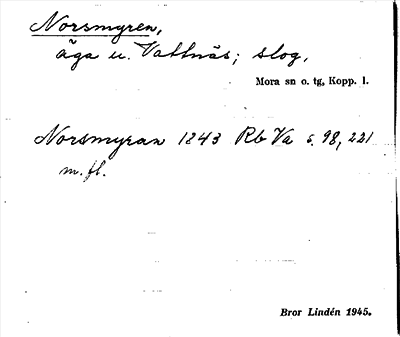 Norsmyren,
äga u. Vattnäs; slog.
Mora sn o. tg, Kopp. l.
Norsmyran 1843 Rb Va s. 98, 221
m. fl.
Bror Lindén 1945.